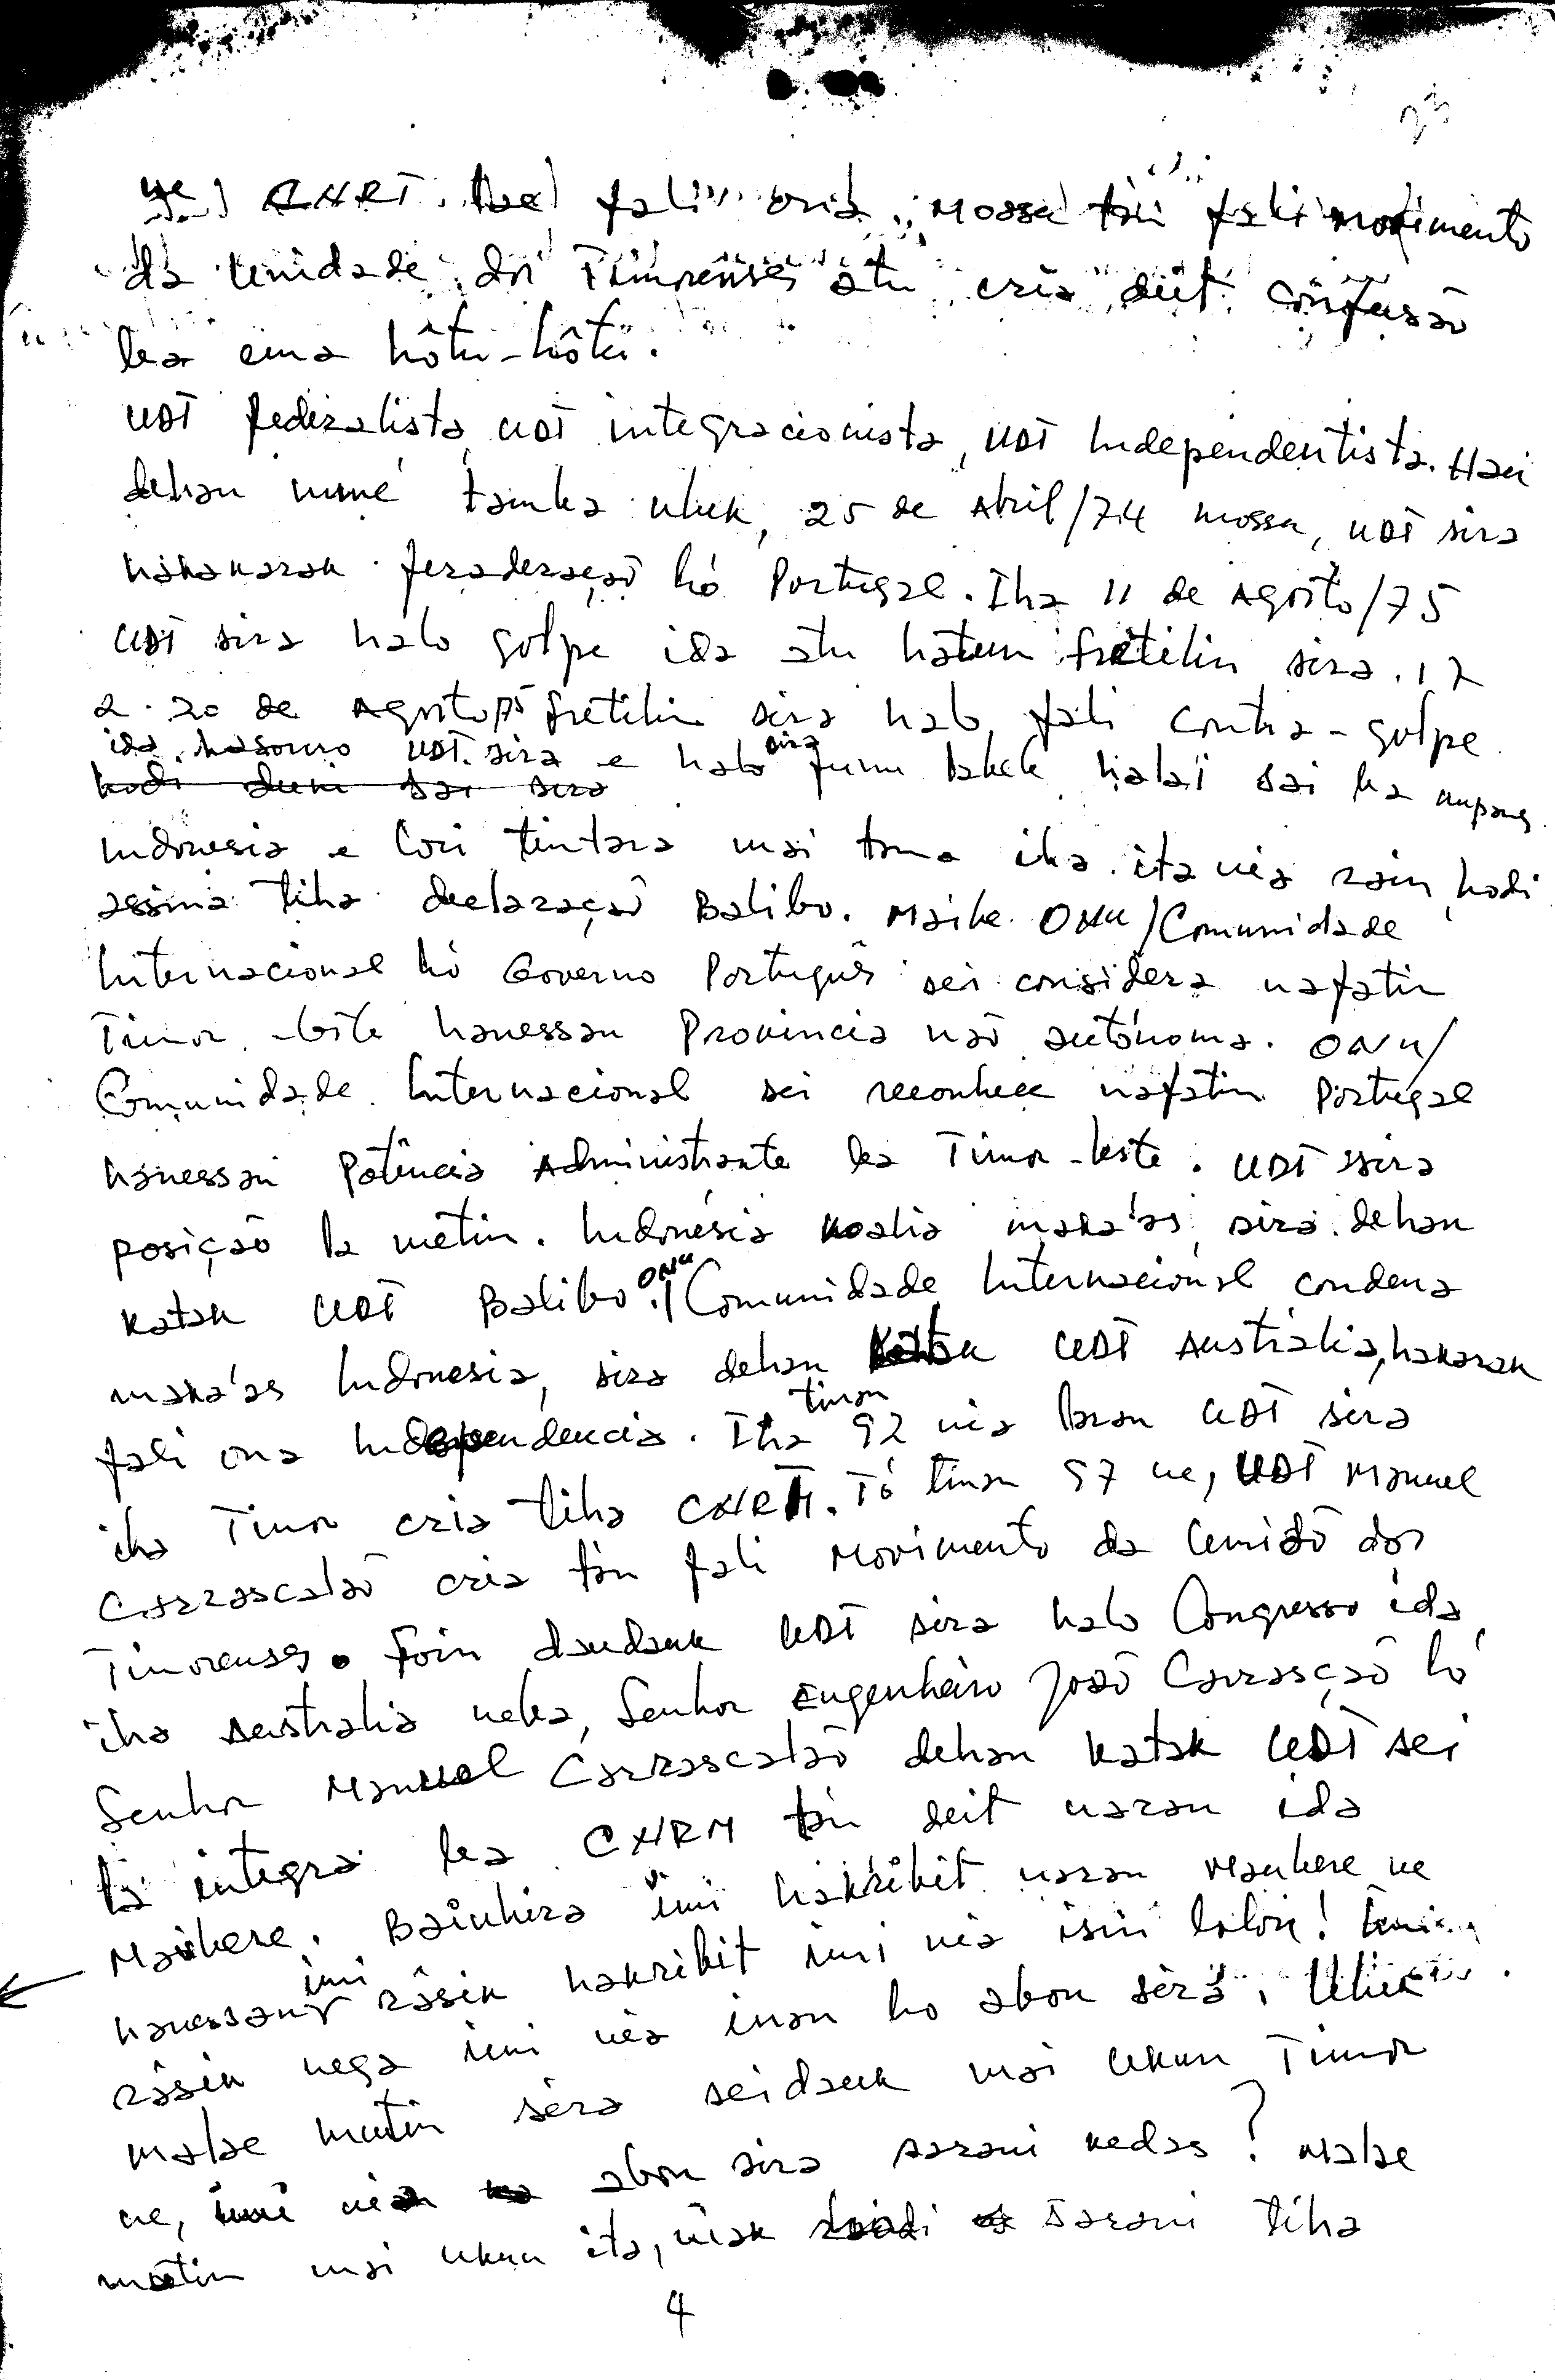 23
ne) CNRT. fali oria, mossu tan fali movimento
da Unidade dos Timorenses atu cria deit confusão
ba ema hôtu-hôtu.
UDT federalista, UDT integracionista, UDT Independentista. Hau
dehan nuné tamba uluk, 25 de Abril/74 mossu, UDT sira
hakarak federação hó Portugal. Iha 11 de Agosto/75
UDT sira halo golpe ida atu hatun fretilin sira. Iha
20 de Agosto/75 fretilin sira halo fali contra-golpe
ida hasouro UDT sira e halo sira funu halai sai ba Kupang
hodi duni sai sira
Indonesia e lori tentara mai tama iha ita nia rain, hodi
assina tiha declaração Balibo. Maibe ONU/Comunidade
Internacional hó Governo Português sei considera nafatin
Timor-leste hanessan Provincia não autónoma. ONU/
Comunidade Internacional sei reconhece nafatin Portugal
hanessan Potência Administrante ba Timor-leste. UDT sira
posição la metin. Indonésia koalia maka'as, sira dehan
katak UDT Balibo. ONU/Comunidade Internacional condena
maka'as Indonesia, sira dehan katak UDT Australia, hakarak
fali ona Independencia. Iha tinan 92 nia laran UDT sira
iha Timor cria tiha CNRM. Tó tinan 97 ne, UDT Manuel
Carrascalão cria tan fali Movimento da Unidão dos
Timorenses. Foin daudauk UDT sira halo Congresso ida
iha Australia neba, Senhor Engenheiro João Carrasção hó
Senhor Manuel Carrascalão dehan katak UDT sei
la integra ba CNRM tan deit naran ida
Maubere. Bainhira imi hakribit naran Maubere ne
hanessan imi rásik hakribit imi nia isin lolon! Imi
rásik nega imi nia inan ho abon sèra. Uluk
malae mutin sèra seidauk mai ukun Timor
ne, imi nia abon sira sarani kedas? Malae
mutin mai ukun ita, mak sarani tiha
4